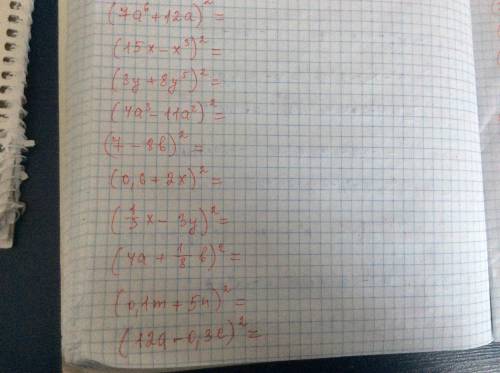 (7a⁶+12a)²=
(15x-x³)²=
(3y+8y⁵)²=
(4a³-11a²)²=
(7-8b)²=
(0,6+2x)²=
(1/3x-3y)²=
(4a+1/8b)²=
(0,1m+5n)²=
(12a-0,3c)²=